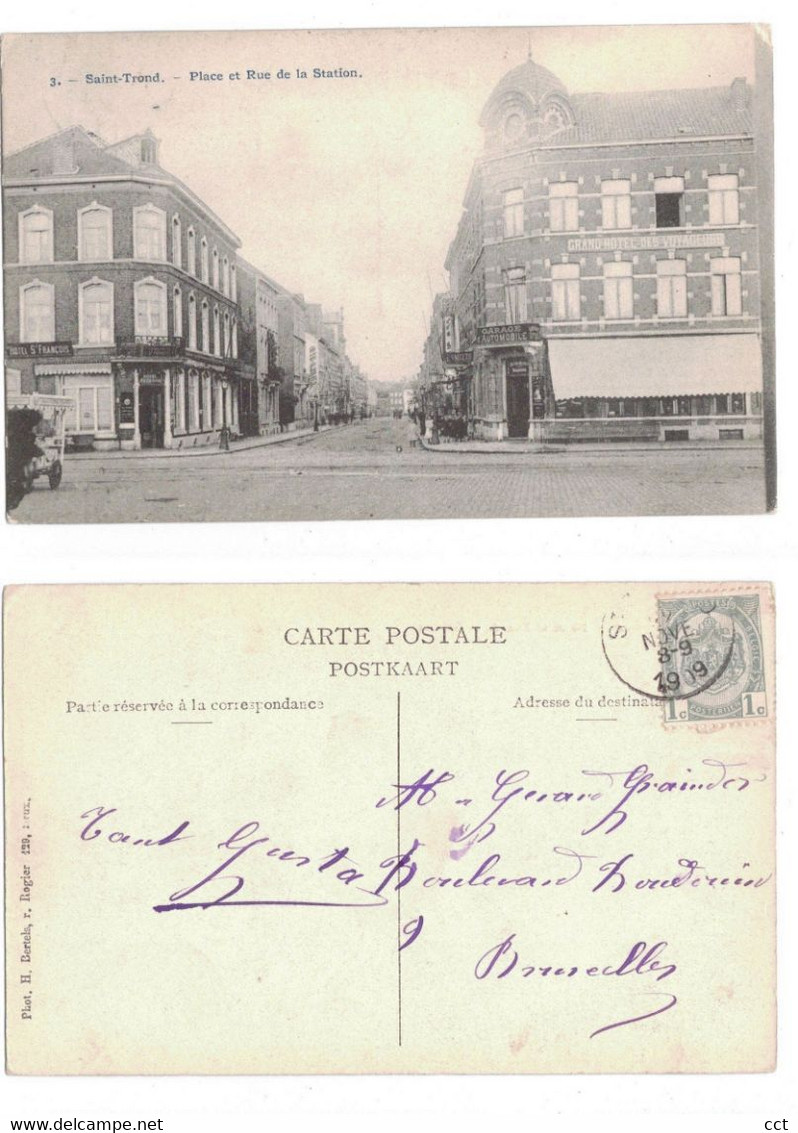 3. - Saint-Trond. - Place et Rue de la Station.
GRAND HOTEL DES VOYAGEURS
GARAGE
AUTOMOBILE
HOTEL St FRANÇOIS
CARTE POSTALE
POSTKAART
Partie réservée à la correspondance
Adresse du destinata
POSTES
NOVE
8-9
1909
1c POSTERIJEN 1c
Mr Gerard
Tant Gusta Boulevard Baudouin
9
Bruxelles
Phot. H. Bertels, r. Rogier 129,
cct